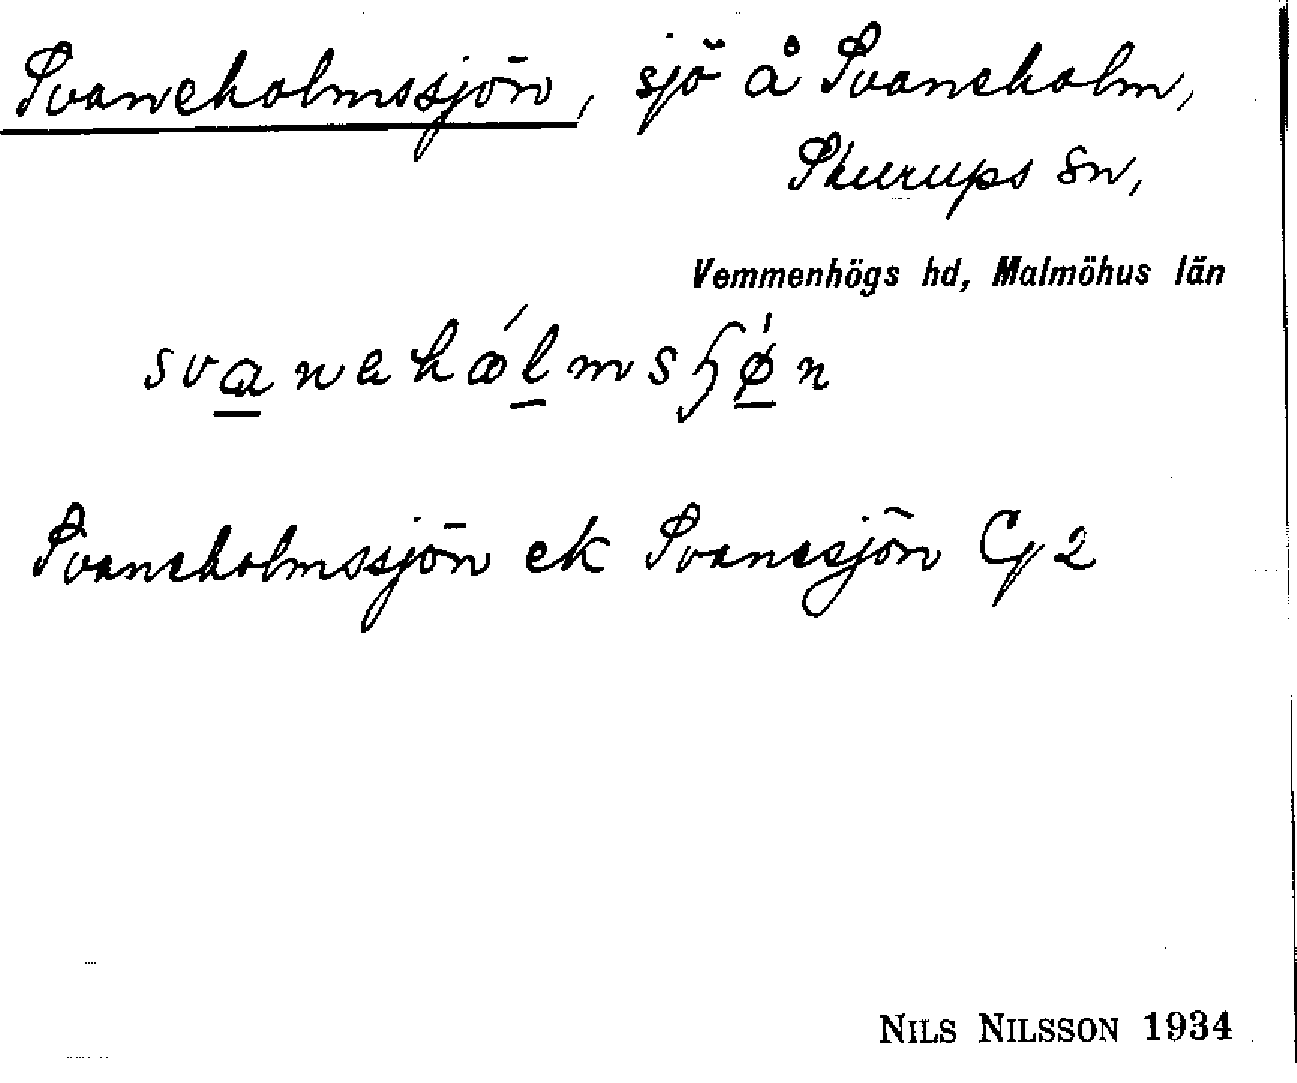 Svaneholmssjön, sjö å Svaneholm,
Skurups sn,
Vemmenhögs hd, Malmöhus län
Svaneholmssjön ek Svanesjön
NILS NILSSON 1934